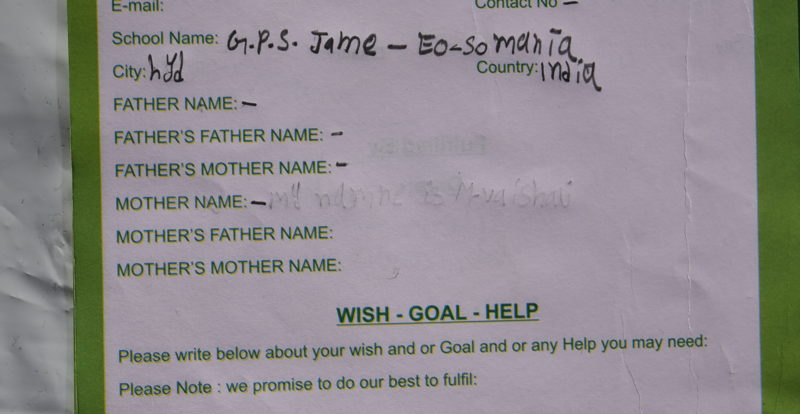 E-mail: Contact No –
School Name: G.P.S. Jame – EO-SO mania
City: hyd Country: india
FATHER NAME: –
FATHER'S FATHER NAME: –
FATHER'S MOTHER NAME: –
MOTHER NAME: – my is
MOTHER'S FATHER NAME:
MOTHER'S MOTHER NAME:
WISH - GOAL - HELP
Please write below about your wish and or Goal and or any Help you may need:
Please Note : we promise to do our best to fulfil: